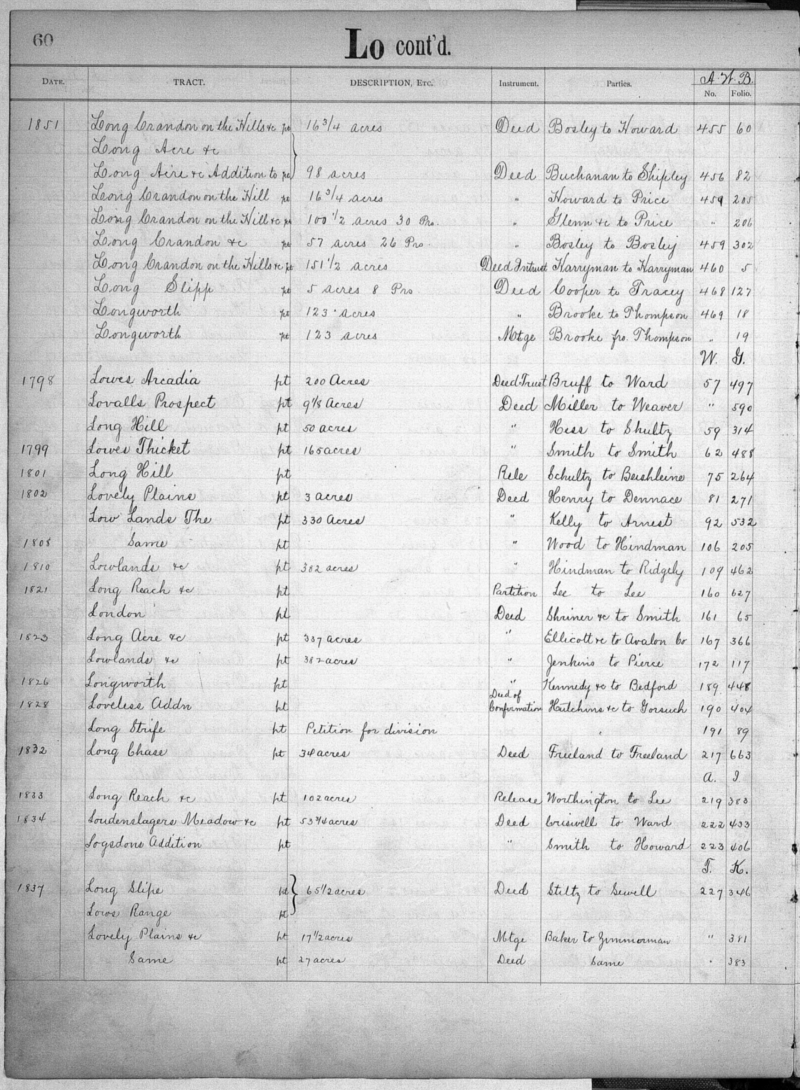 60
Lo cont'd.
DATE. TRACT. DESCRIPTION, Etc. Instrument. Parties. A. W. B.
No. Folio.
1851 Long Crandon on the Hills &c pt 16 3/4 acres Deed Bosley to Howard 455 60
Long Acre &c
Long Acre &c Addition to pt } 98 acres Deed Buchanan to Shipley 456 82
Long Crandon on the Hill pt 16 3/4 acres " Howard to Price 459 205
Long Crandon on the Hill &c pt 100 1/2 acres 30 Prs. " Glenn &c to Price " 206
Long Crandon &c pt 57 acres 26 Prs " Bosley to Bosley 459 302
Long Crandon on the Hills &c pt 151 1/2 acres Deed Intrust Harryman to Harryman 460 5
Long Slipp pt 5 acres 8 Prs Deed Cooper to Tracey 468 127
Longworth pt 123 acres " Brooke to Thompson 469 18
Longworth pt 123 acres Mtge Brooke fro. Thompson " 19
W. G.
1798 Lowes Arcadia pt 200 Acres Deed Trust Bruff to Ward 57 497
Lovalls Prospect pt 9 1/8 Acres Deed Miller to Weaver " 590
Long Hill pt 50 acres " Hess to Shultz 59 314
1799 Lowes Thicket pt 165 acres " Smith to Smith 62 488
1801 Long Hill pt Rele Schultz to 75 264
1802 Lovely Plains pt 3 acres Deed Henry to Dennace 81 271
Low Lands The pt 330 Acres " Kelly to Arnest 92 532
1808 Same pt " Wood to Hindman 106 205
1810 Lowlands &c pt 302 acres " Hindman to Ridgely 109 462
1821 Long Reach &c pt Partition Lee to Lee 160 627
London pt Deed Shriner &c to Smith 161 65
1823 Long Acre &c pt 337 acres " Ellicott &c to Avalon Co 167 366
Lowlands &c pt 302 acres " Jenkins to Pierce 172 117
1826 Longworth pt " Kennedy &c to Bedford 189 448
1828 Loveless Addn pt Deed of Confirmation Hutchins &c to Gorsuch 190 404
Long Strife pt Petition for division " 191 89
1832 Long Chase pt 34 acres Deed Freeland to Freeland 217 663
A. I.
1833 Long Reach &c pt 102 acres Release Worthington to Lee 219 383
1834 Loudenslagers Meadow &c pt 53 1/4 acres Deed Criswell to Ward 222 433
Logsdons Addition pt " Smith to Howard 223 406
T. K.
1837 Long Slipe pt } 65 1/2 acres Deed Stiltz to Sewell 227 346
Lows Range pt
Lovely Plains &c pt 17 1/2 acres Mtge Baker to Zimmerman " 381
Same pt 27 acres Deed Same " 383